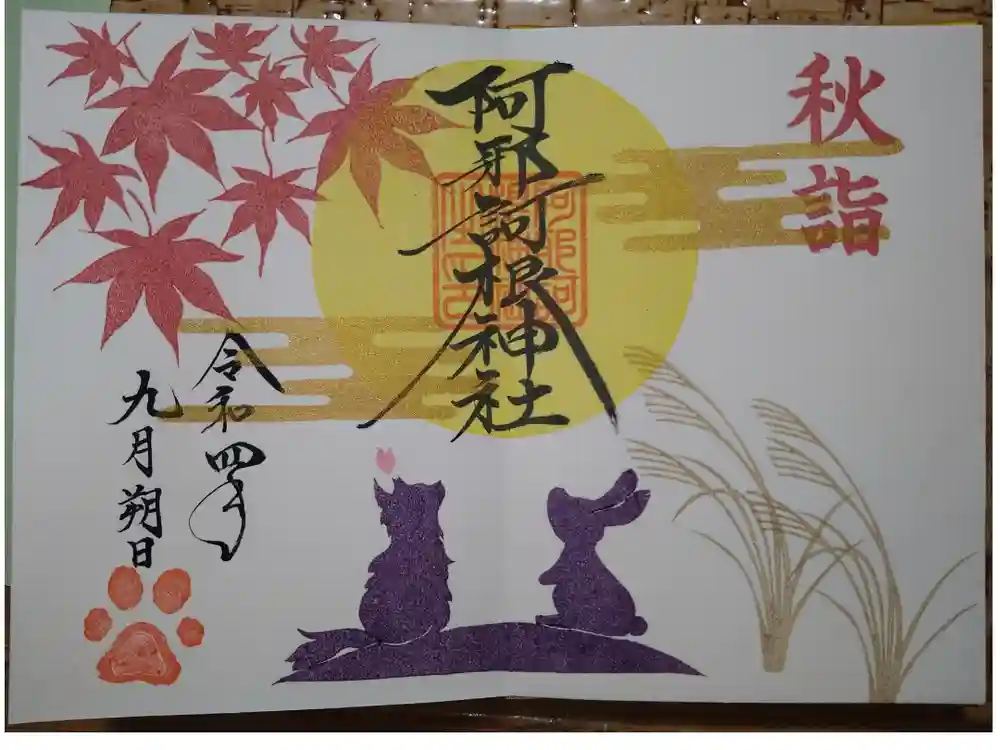 秋詣
阿邪訶根神社
令和四年
九月朔日